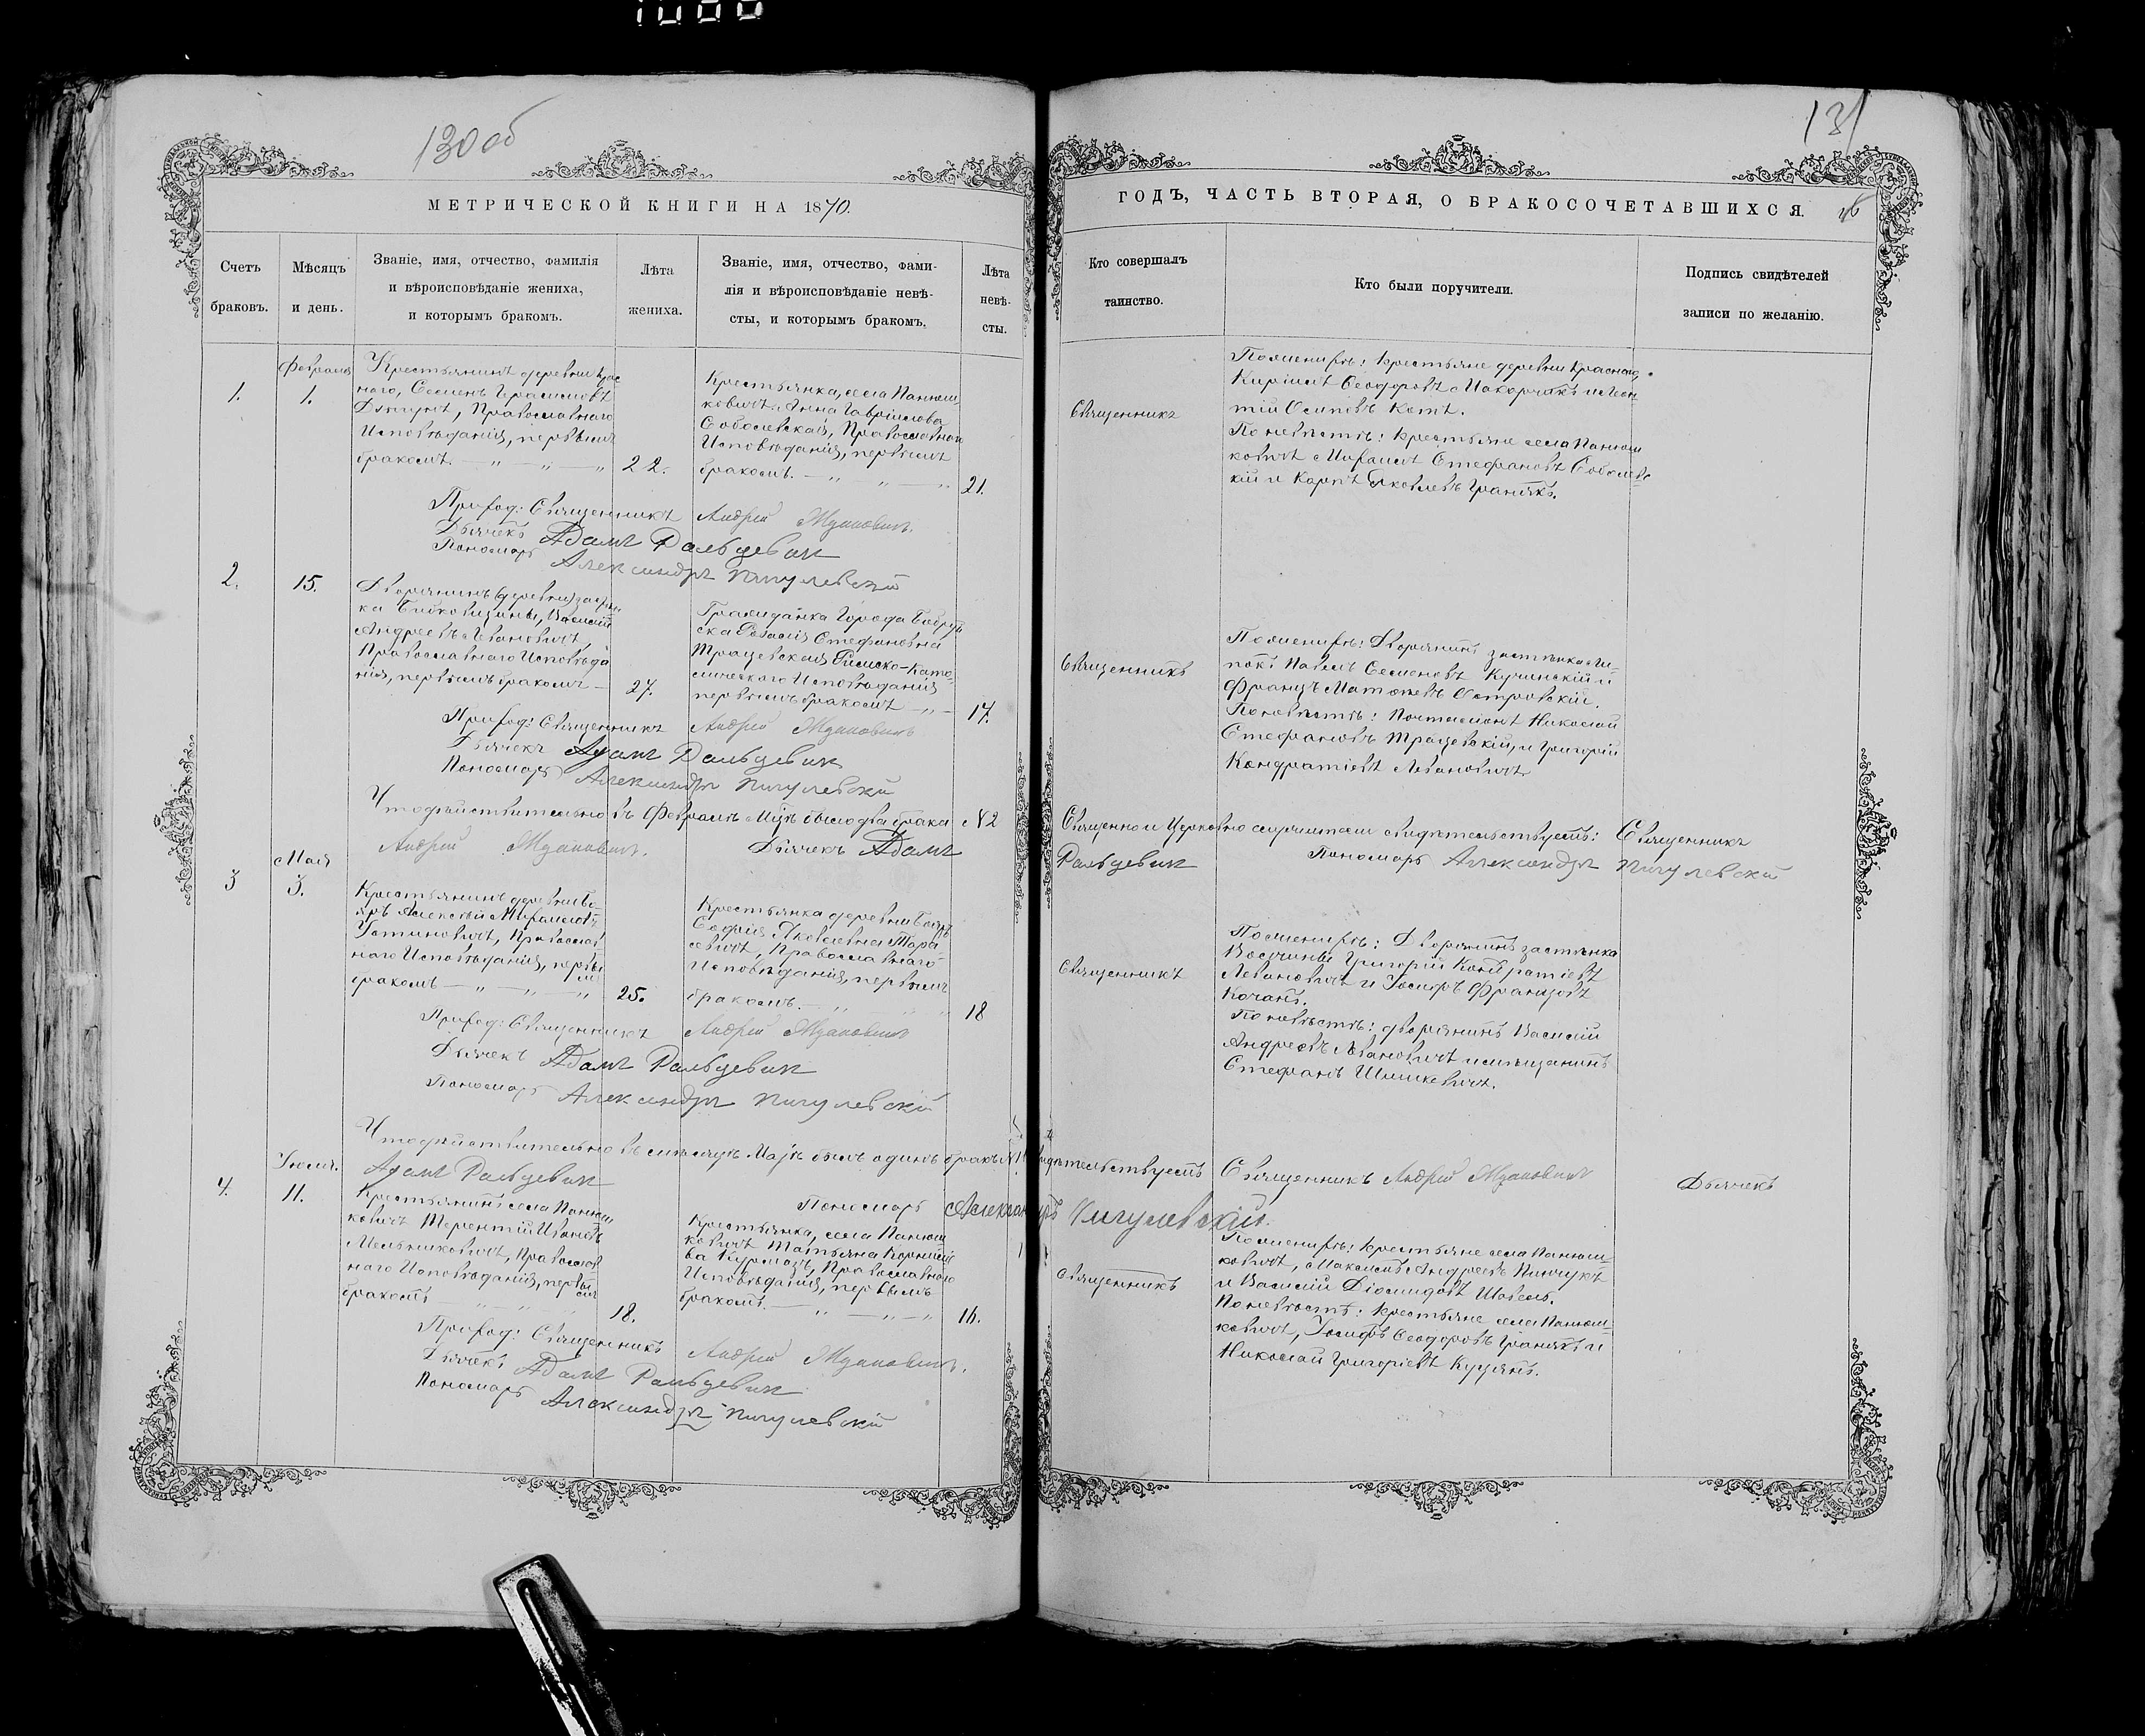 130 об
131
МЕТРИЧЕСКОЙ КНИГИ НА 1870.
ГОДЪ, ЧАСТЬ ВТОРАЯ, О БРАКОСОЧЕТАВШИХСЯ.
Счетъ
браковъ.
Мѣсяцъ
и день.
Званіе, имя, отчество, фамилія
и вѣроисповѣданіе жениха,
и которымъ бракомъ.
Лѣта
жениха.
Званіе, имя, отчество, фами-
лія и вѣроисповѣданіе невѣ-
сты, и которымъ бракомъ.
Лѣта
невѣ-
сты.
Кто совершалъ
таинство.
Кто были поручители.
Подпись свидѣтелей
записи по желанію.
1.
Февраля
1.
Крестьянинъ деревни Крас
наго, Семенъ Герасимовъ
Православнаго
Исповѣданія, первымъ
бракомъ.
22.
Крестьянка, села Панюш-
ковичъ Анна Гавріилова
Соболевская, Православнаго
Исповѣданія, первымъ
бракомъ.
21.
Священникъ
По женихѣ: Крестьяне деревни Краснаго,
Кирилъ Ѳеодоровъ Макорчикъ и Леон-
тій Осиповъ Котъ.
По невѣстѣ: Крестьяне села Панюш
ковичъ Михаилъ Стефановъ Соболевс
кій и Карпъ Яковлевъ Гранякъ.
Приход: Священникъ Андрей Ждановичъ.
Дьячекъ Адамъ Ральцевич
Пономарь Александръ Пигулевскій
2.
15.
Дворянинъ (деревни) застѣн
ка Бибковщины, Василій
Андреевъ Левановичъ,
Православнаго Исповѣда
нія, первымъ бракомъ
27.
Гражданка Города Бобруй
ска Розалія Стефановна
Трацевская Римско-Като-
лическаго Исповѣданія
первымъ бракомъ
17.
Священникъ
По женихѣ: Дворянинъ застѣнка Ли-
покъ Павелъ Семеновъ Кучинскій и
Францъ Матѳеевъ Островскій.
По невѣстѣ: Почталіонъ Николай
Стефановъ Трацевскій, и Григорій
Кондратіевъ Левановичъ
Приход: Священникъ Андрей Ждановичъ
Дьячекъ Адамъ Ральцевич
Пономарь Александръ Пигулевскій
Что дѣйствительно въ Февралѣ М҃цѣ было два брака №2 Священно и Церковно служители свидѣтельствуетъ: Священникъ
Андрей Ждановичъ. Дьячекъ Адамъ Ральцевич Пономарь Александръ Пигулевскій
3
Мая
3.
Крестьянинъ деревни Бо-
яръ Алексѣй Михаиловъ
Устиновичъ, Православ
наго Исповѣданія, первы
мъ
бракомъ
25.
Крестьянка деревни Бояръ
Софія Яковлевна Тара
севичъ, Православнаго
Исповѣданія, первымъ
бракомъ.
18
Священникъ
По женихѣ: Дворянинъ застѣнка
Григорій Кондратіевъ
Левановичъ и Іосифъ Францовъ
Кочанъ.
По невѣстѣ: дворянинъ Василій
Андреевъ Левановичъ и мѣщанинъ
Стефанъ Шишкевичъ.
Приход: Священникъ Андрей Ждановичъ
Дьячекъ Адамъ Ральцевич
Пономарь Александръ Пигулевскій
Что дѣйствительно въ мѣсяцѣ Маѣ былъ одинъ бракъ №1 свидѣтельствуетъ Священникъ Андрей Ждановичъ Дьячекъ
Адамъ Ральцевич Пономарь Александръ Пигулевскій.
4.
Іюля.
11.
Крестьянинъ села Панюш
ковичъ Терентій Ивановъ
Мельниковичъ, Православ
наго Исповѣданія, первы
мъ
бракомъ
18.
Крестьянка, села Панюш
ковичъ Татьяна Корнилі
ва Курмазъ, Православнаго
Исповѣданія, первымъ
бракомъ.
16.
Священникъ
По женихѣ: Крестьяне села Панюш-
ковичъ, Максимъ Андреевъ Пинчукъ
и Василій Діомидовъ Шовель.
По невѣстѣ: Крестьяне села Панюш-
ковичъ, Іосифъ Ѳеодоровъ Гранякъ и
Николай Григоріевъ Куцянъ.
Приход: Священникъ Андрей Ждановичъ.
Дьячекъ Адамъ Ральцевич
Пономарь Александръ Пигулевскій